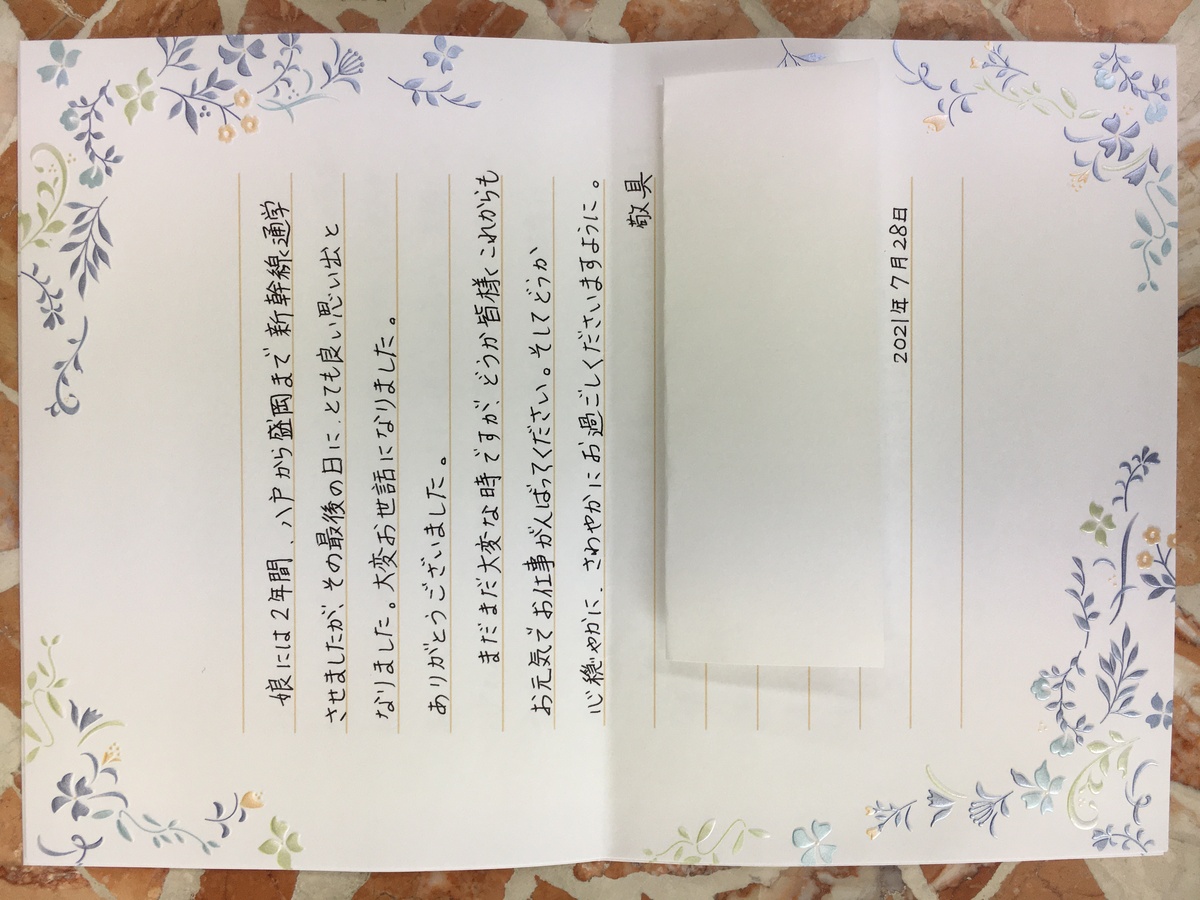 娘には2年間、八戸から盛岡まで新幹線で通学
させましたが、その最後の日に、とても良い思い出と
なりました。大変お世話になりました。
ありがとうございました。
まだまだ大変な時ですが、どうか皆様もこれからも
お元気でお仕事がんばってください。そしてどうか
心穏やかに、さわやかにお過ごしくださいますように。
敬具
2021年7月28日